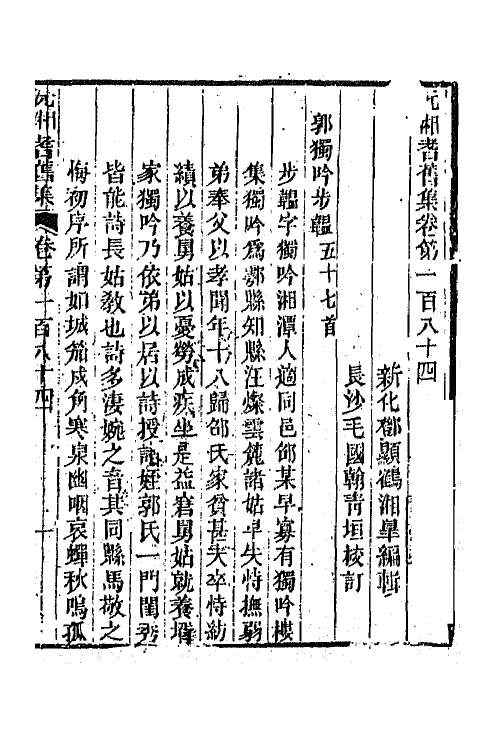 沅湘耆舊集卷第一百八十四
新化鄧顯鶴湘皋編輯
長沙毛國翰青垣校訂
郭獨吟步韞五十七首
步韞字獨吟湘潭人適同邑邵某早寡有獨吟樓
集獨吟爲鄠縣知縣汪燦雲麓諸姑早失恃撫弱
弟奉父以孝聞年十八歸邵氏家貧甚夫卒恃紡
績以養舅姑以憂勞成疾坐是益窘舅姑就養壻
家獨吟乃依弟以居以詩授諸姪郭氏一門閨秀
皆能詩長姑敎也詩多淒婉之音其同縣馬敬之
悔初序所謂如城笳戍角寒泉幽咽哀蟬秋鳴孤
沅湘耆舊集 卷第一百八十四 一